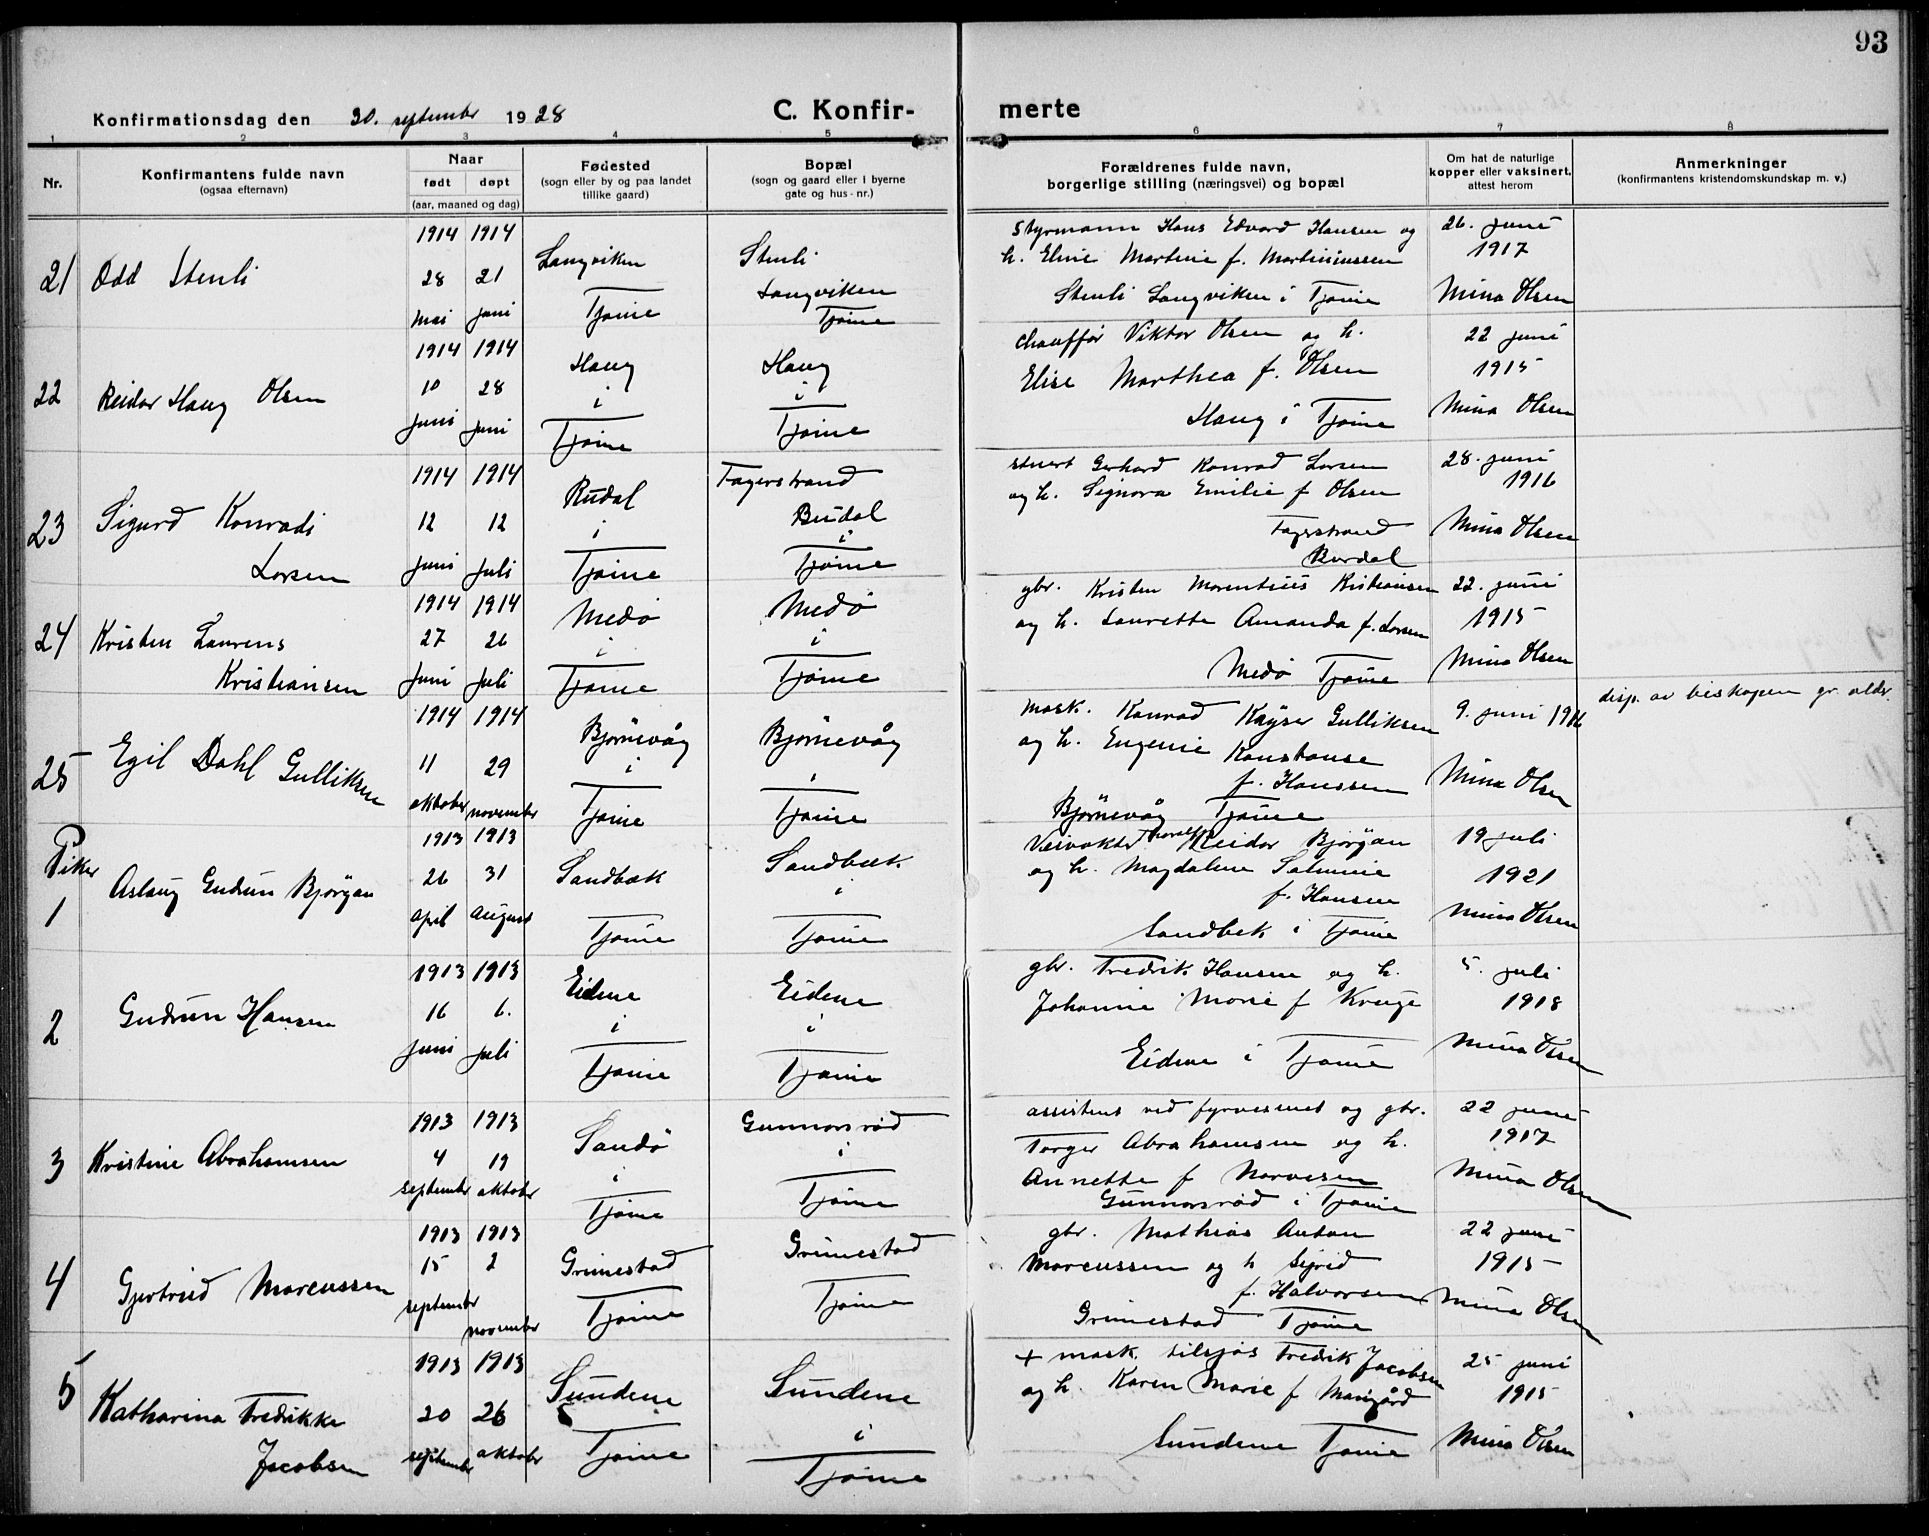 93
Konfirmationsdag den 30. september 1928
C. Konfir-
merte
1 2 3 4 5 6 7 8
Nr.
Konfirmantens fulde navn
(ogsaa efternavn)
Naar
født døpt
(aar, maaned og dag)
Fødested
(sogn eller by og paa landet
tillike gaard)
Bopæl
(sogn og gaard eller i byerne
gate og hus-nr.)
Forældrenes fulde navn,
borgerlige stilling (næringsvei) og bopæl
Om hat de naturlige
kopper eller vaksinert,
attest herom
Anmerkninger
(konfirmantens kristendomskundskap m. v.)
21 Odd Stenli
1914 1914
28 21
mai juni
Langviken
Tjøme
Stenli
Langviken
Tjøme
Styrmann Hans Edvard Hansen og
h. Eline Martine f. Martiniussen
Stenli Langviken i Tjøme
26. juni
1917
Mina Olsen
22 Reidar Haug Olsen
1914 1914
10 28
juni juni
Haug
i
Tjøme
Haug
i
Tjøme
chauffør Viktor Olsen og h.
Elise Marthea f. Olsen
Haug i Tjøme
22 juni
1915
Mina Olsen
23 Sigurd Konradi
Larsen
1914 1914
12 12
juni juli
Rudal
i
Tjøme
Fagerstrand
Budal
i
Tjøme
stuert Gerhard Konrad Larsen
og h. Signora Emilie f Olsen
Fagerstrand
Burdal
28. juni
1916
Mina Olsen
24 Kristen Laurens
Kristiansen
1914 1914
27 26
juni juli
Medø
i
Tjøme
Medø
i
Tjøme
gbr. Kristen Morentius Kristiansen
og h. Laurette Amanda f. Larsen
Medø Tjøme
22. juni
1915
Mina Olsen
25 Egil Dahl Gulliksen
1914 1914
11 29
oktober november
Bjørnevåg
i
Tjøme
Bjørnevåg
i
Tjøme
mask. Konrad Kayser Gulliksen
og h. Eugenie Konstanse
f. Hanssen
Bjørnevåg Tjøme
9. juni 1916
Mina Olsen
disp. av biskopen gr. alder
Piker
1 Aslaug Gudrun Bjørgan
1913 1913
26 31
april august
Sandbæk
Tjøme
Sandbæk
i
Tjøme
Veivokter Reidar Bjørgan
og h. Magdalene
f. Hansen
Sandbek i Tjøme
19 juli
1921
Mina Olsen
2 Gudrun Hansen
1913 1913
16 6.
juni juli
Eidene
i
Tjøme
Eidene
i
Tjøme
gbr. Fredrik Hansen og h.
Johanne Marie f Kruge
Eidene i Tjøme
5. juli
1918
Mina Olsen
3 Kristine Abrahamsen
1913 1913
4 19
september oktober
Sandø
i
Tjøme
Gunnarsrød
i
Tjøme
assistent ved fyrvesenet og gbr.
Torger Abrahamsen og h.
Annette f Narvesen
Gunnarsrød i Tjøme
22 juni
1917
Mina Olsen
4 Gjertrud Marcussen
1913 1913
15 2
september november
Grimestad
Tjøme
Grimestad
Tjøme
gbr. Mathias Anton
Marcussen og h Sigrid
f. Halvorsen
Grimestad Tjøme
22 juni
1915
Mina Olsen
5 Katharina Fredrikke
Jacobsen
1913 1913
20 26
september oktober
Sundene
i
Tjøme
Sundene
i
Tjøme
+ mask. tilsjøs Fredrik Jacobsen
og h. Karen Marie f
Sundene Tjøme
25 juni
1915
Mina Olsen